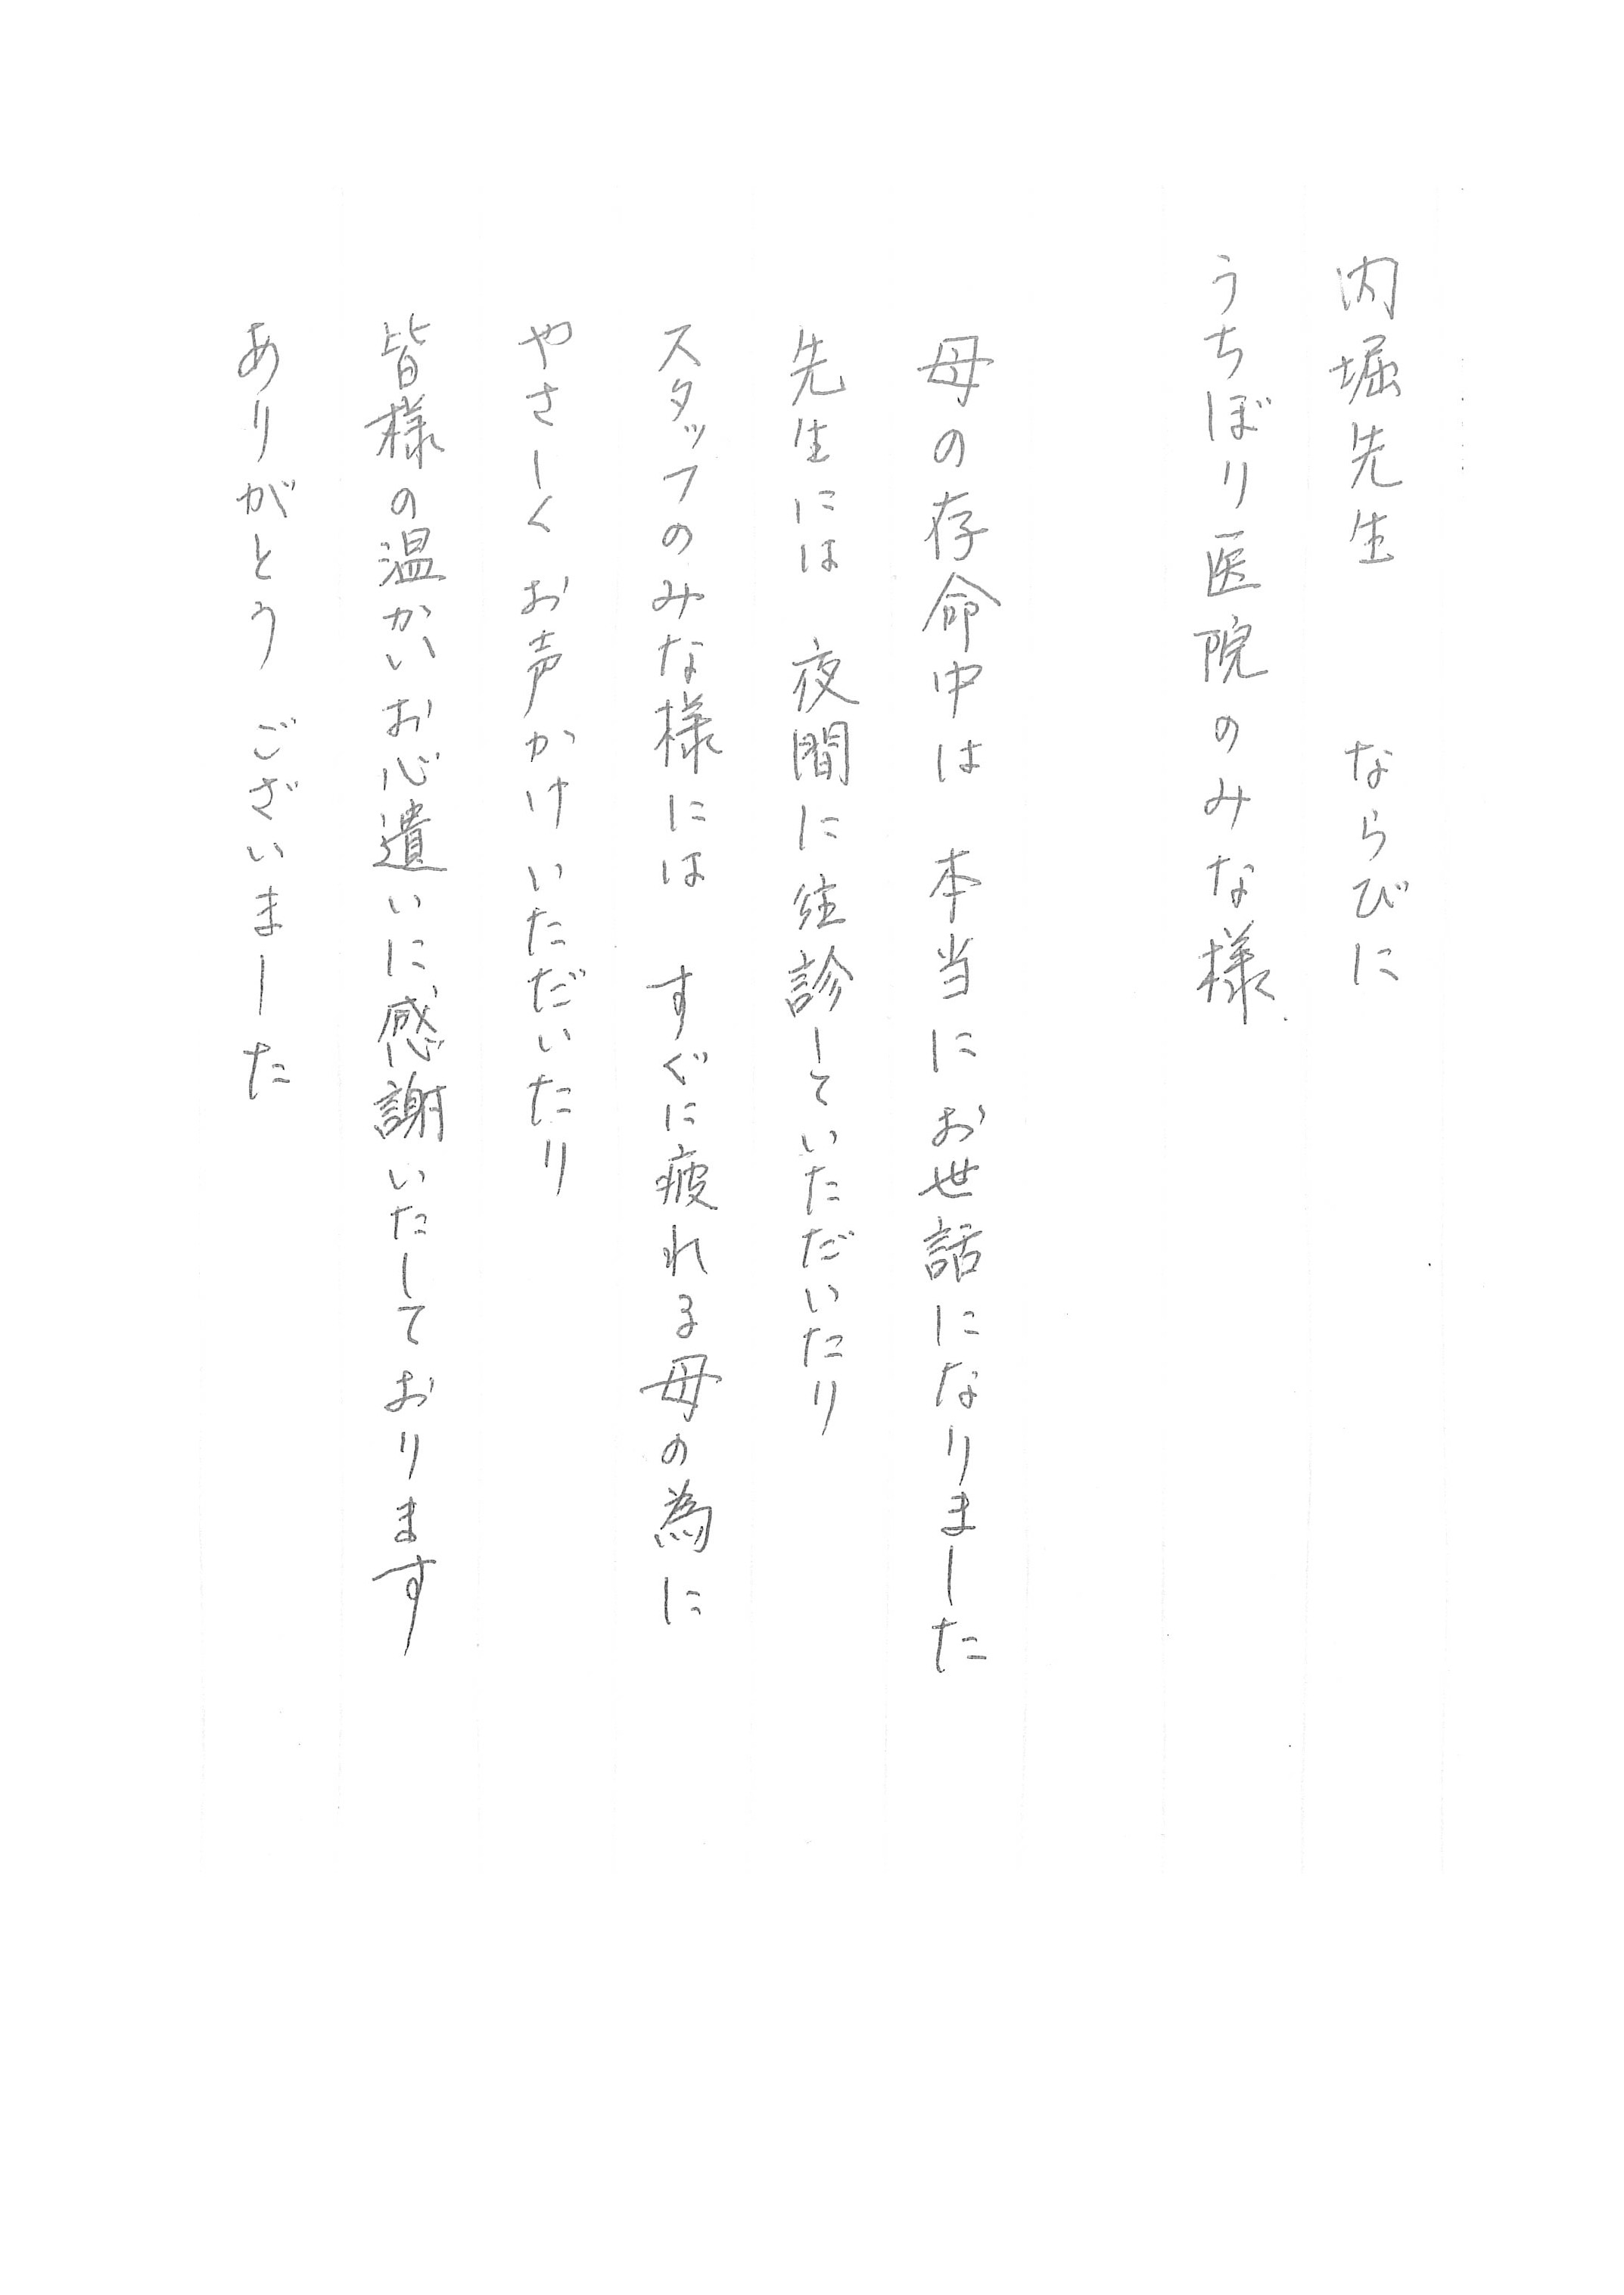 内堀先生　ならびに
うちぼり医院のみな様
母の存命中は　本当にお世話になりました
先生には　夜間に往診していただいたり
スタッフのみな様には　すぐに疲れる母の為に
やさしく　お声かけいただいたり
皆様の温かいお心遣いに感謝いたしております
ありがとう　ございました